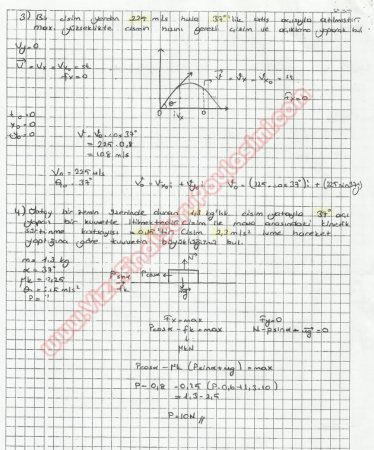 3) Bir cisim yerden 225 m/s hızla 37° lik atış açısıyla atılmıştır.
max. yükseklikte cismin hızını gerekli çizim ve açıklama yaparak bul.
Vy=0
V = Vx = Vx₀ = st
Fx=0
V = Vx = Vx₀ = st
Fx=0
θ
Vx
t₀=0
x₀=0
y₀=0
V = V₀.cos37
= 225.0,8
= 108 m/s
V₀ = 225 m/s
θ₀ = 37°
V₀ = Vx₀ i + Vy₀ j
V₀ = (225.cos37°) i + (225 sin37) j
4) Yatay bir zemin üzerinde duran 1,3 kg'lık cisim yatayla 37° açı
yapan bir kuvvetle itilmektedir. Cisim ile masa arasındaki kinetik
sürtünme katsayısı 0,25'tir. Cisim m/s² ivme hareket
yaptığına göre kuvvetin büyüklüğünü bul.
m = 1,3 kg
α = 37°
μk = 0,25
P = ?
Psinα
Pcosα
fk
Fx = max
Fy=0
Pcosα - fk = max
N - Psinα - mg = 0
μkN
Pcosα - μk (Psinα + mg) = max
P.0,8 - 0,25 (P.0,6 + 1,3.10)
= 1,3.2,5
P = 10N //
www.VizeFinalKitapPaylasimi.com